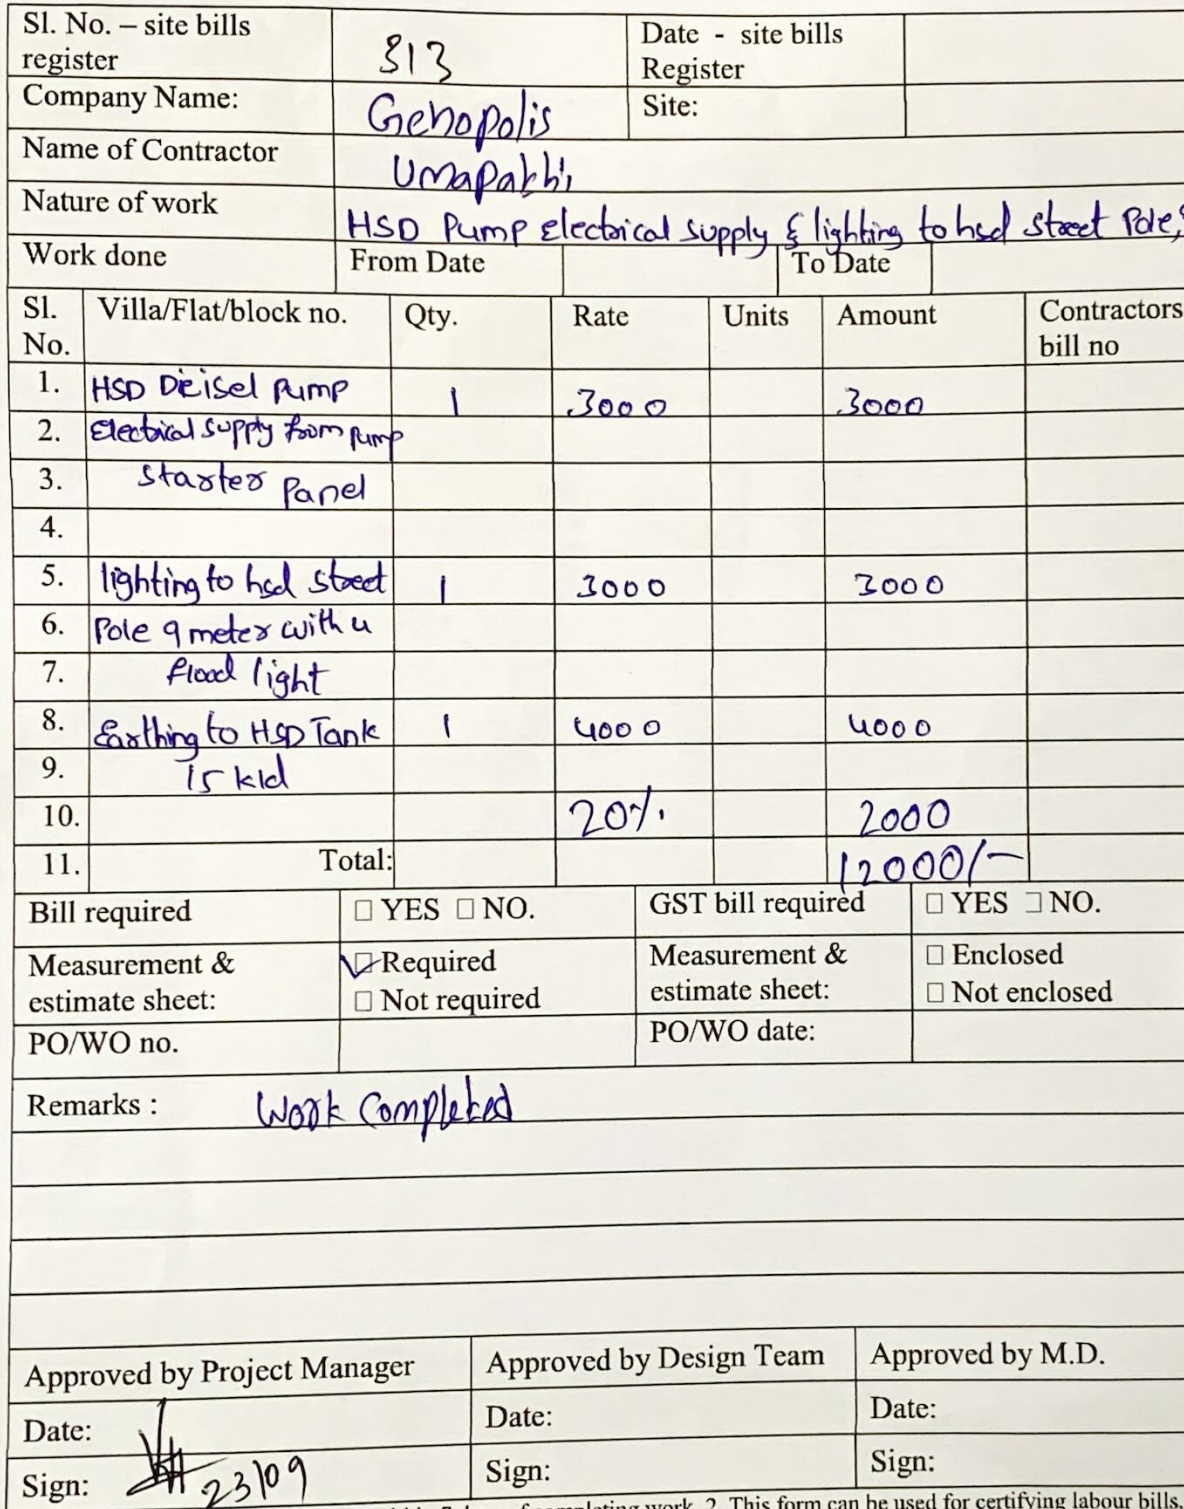 Sl. No. – site bills register 313 Date - site bills Register
Company Name: Genopolis Site:
Name of Contractor Umapathi
Nature of work HSD Pump electrical supply & lighting to hsd street Pole,
Work done From Date To Date
Sl. No. Villa/Flat/block no. Qty. Rate Units Amount Contractors bill no
1. HSD Dieisel Pump 1 3000 3000
2. Electrical supply from pump
3. starter Panel
4.
5. lighting to hsd street 1 3000 3000
6. Pole 9 meter with 4
7. flood light
8. Earthing to HSD Tank 1 4000 4000
9. 15 kld
10. 20% 2000
11. Total: 12000/-
Bill required □ YES □ NO. GST bill required □ YES □ NO.
Measurement & estimate sheet: ☑ Required □ Not required Measurement & estimate sheet: □ Enclosed □ Not enclosed
PO/WO no. PO/WO date:
Remarks : Work Completed
Approved by Project Manager Approved by Design Team Approved by M.D.
Date: Date: Date:
Sign: 23/09 Sign: Sign:
work. 2. This form can be used for certifying labour bills